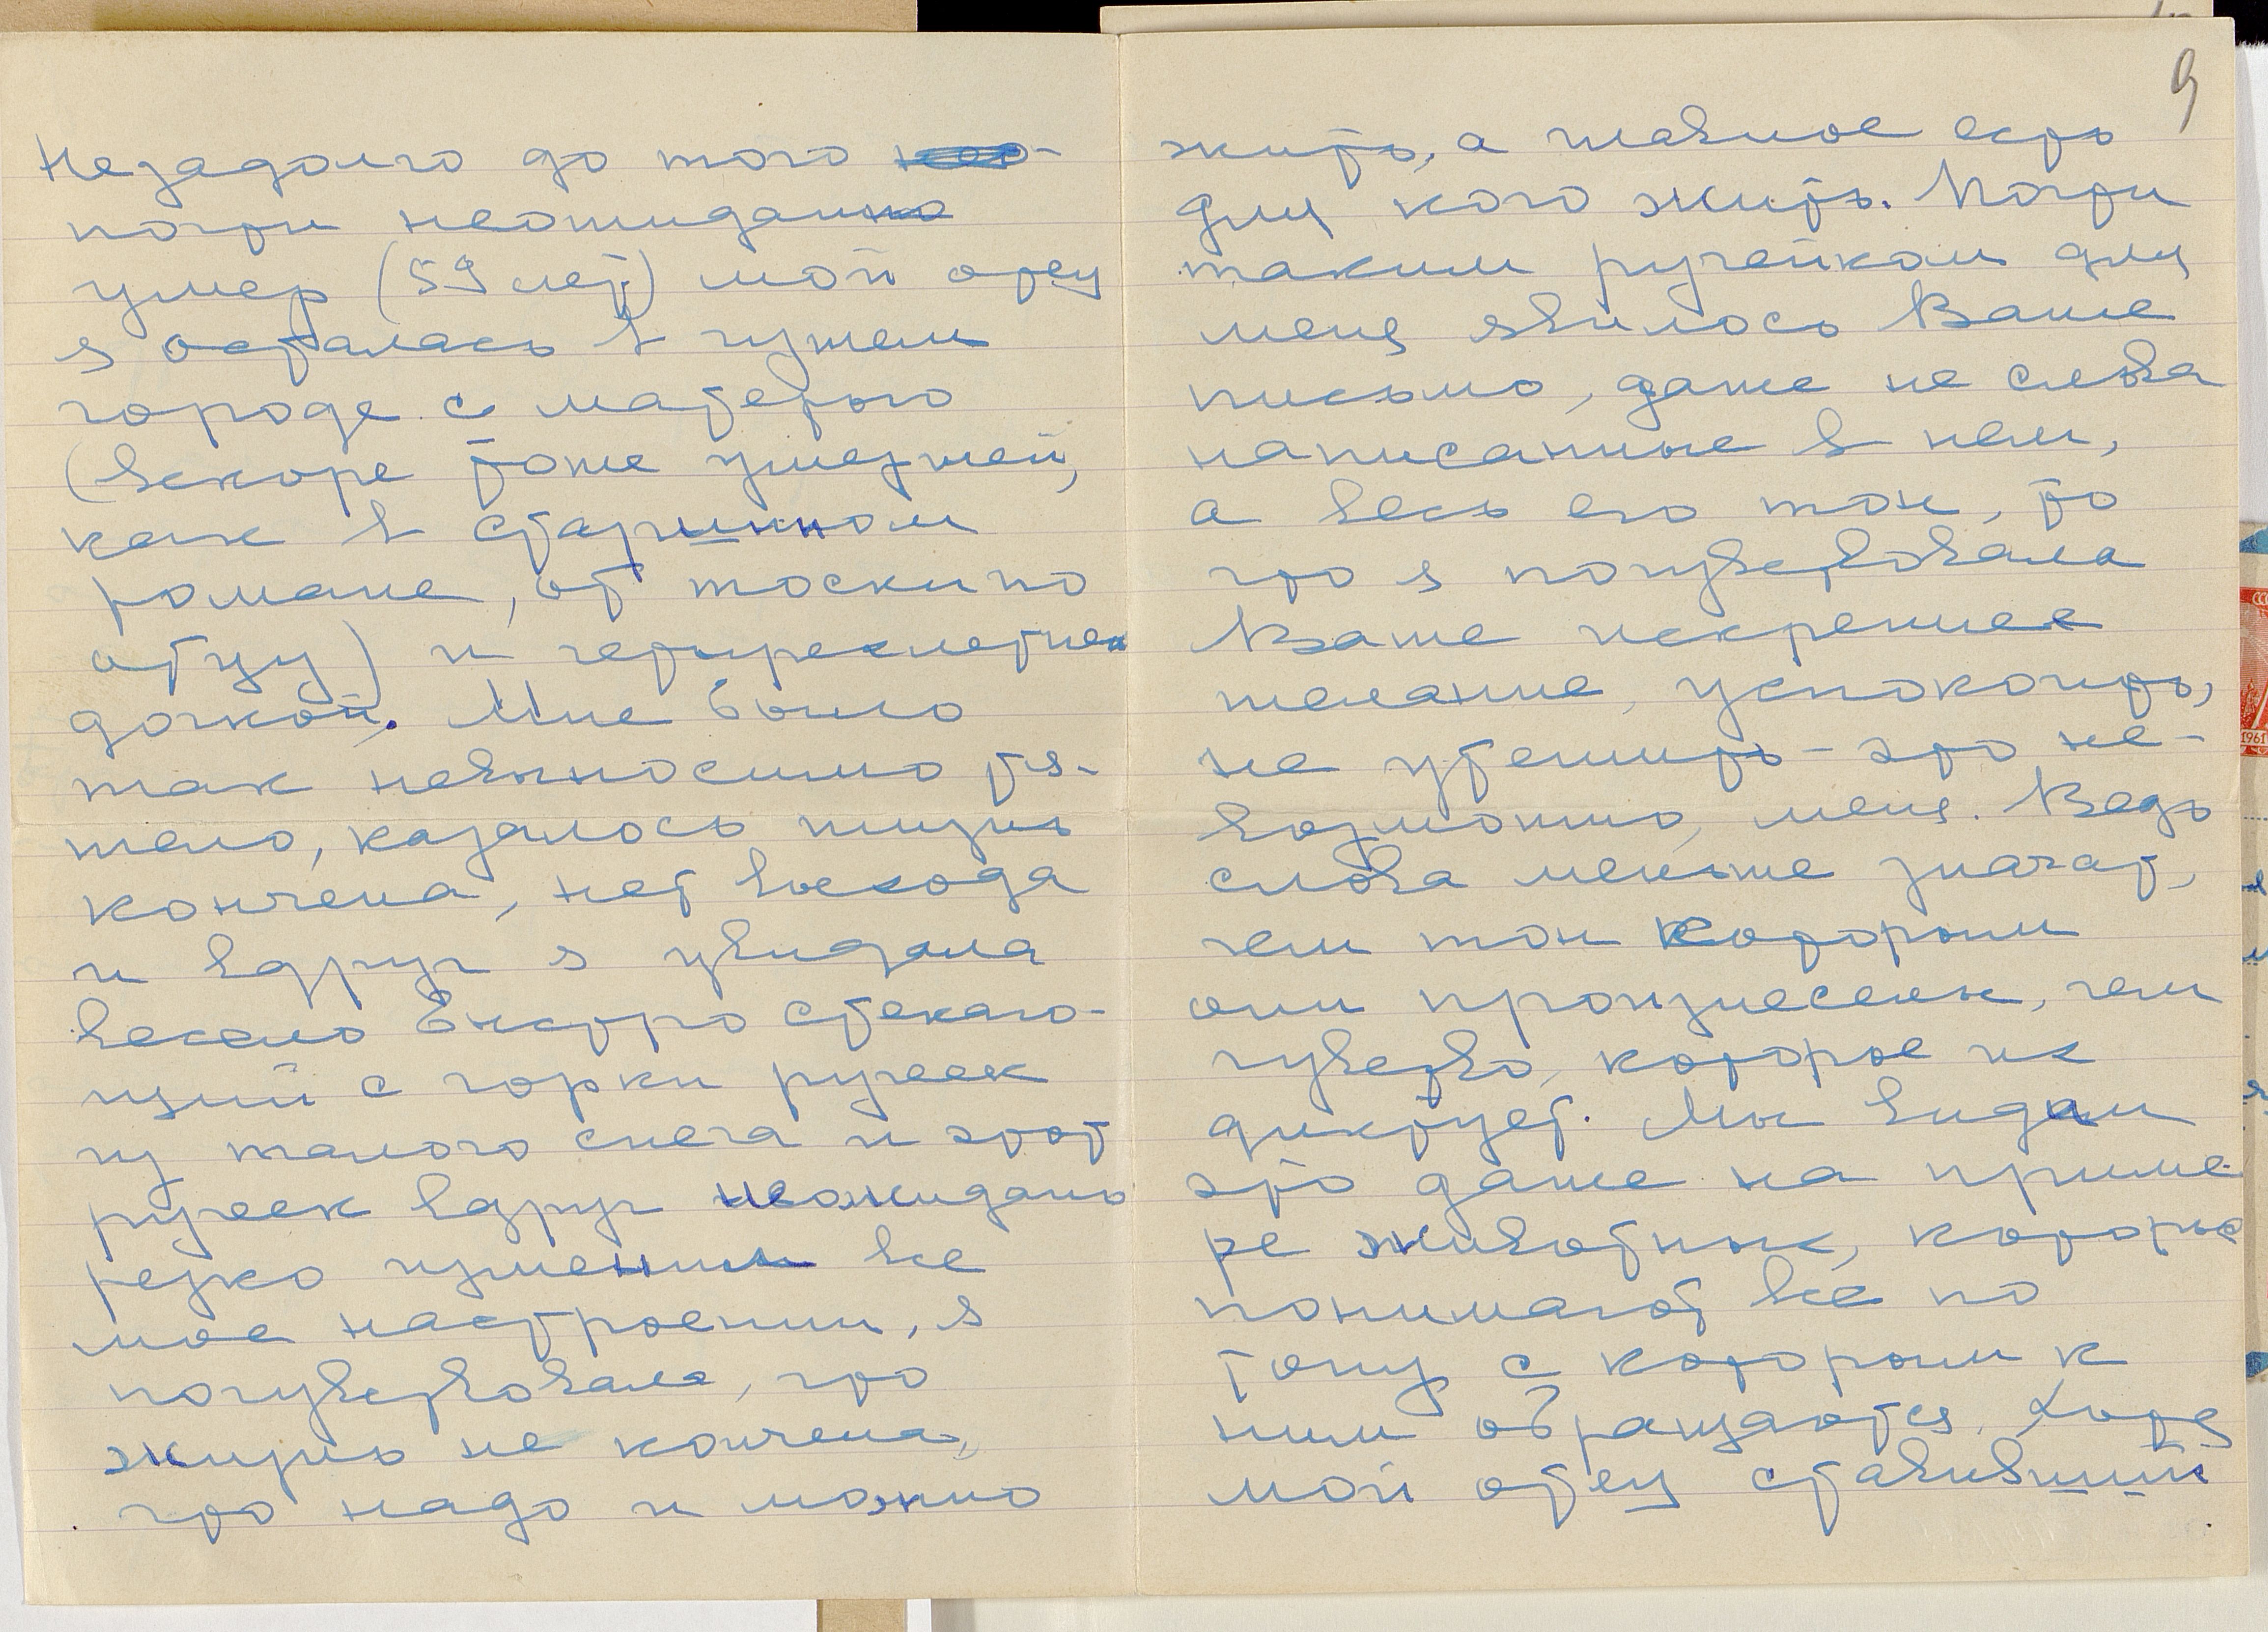 Незадолго до того
почти неожиданно
умер (59 лет) мой отец
я осталась в чужом
городе с матерью
(вскоре тоже умершей,
как в старинном
романе, от тоски по
отцу) и четырехлетней
дочкой. Мне было
так невыносимо тя-
жело, казалось жизнь
кончена, нет выхода
и вдруг я увидала
весело быстро стекаю-
щий с горки ручеек
из талого снега и этот
ручеек вдруг неожидано
резко изменил все
мое настроении, я
почувствовала, что
жизнь не кончена,
что надо и можно
9
жить, а главное есть
для кого жить. Почти
таким ручейком для
меня явилось Ваше
письмо, даже не слова
написанные в нем,
а весь его тон, то
что я почувствовала
Ваше искреннее
желание, успокоить,
не утешить – это не-
возможно, меня. Ведь
слова меньше значат,
чем тон которым
они произнесены, чем
чувство, которое их
диктует. Мы видим
это даже на приме-
ре животных, которые
понимают всё по
тону с которым к
ним обращаются. Хотя
мой отец ставивший
1961